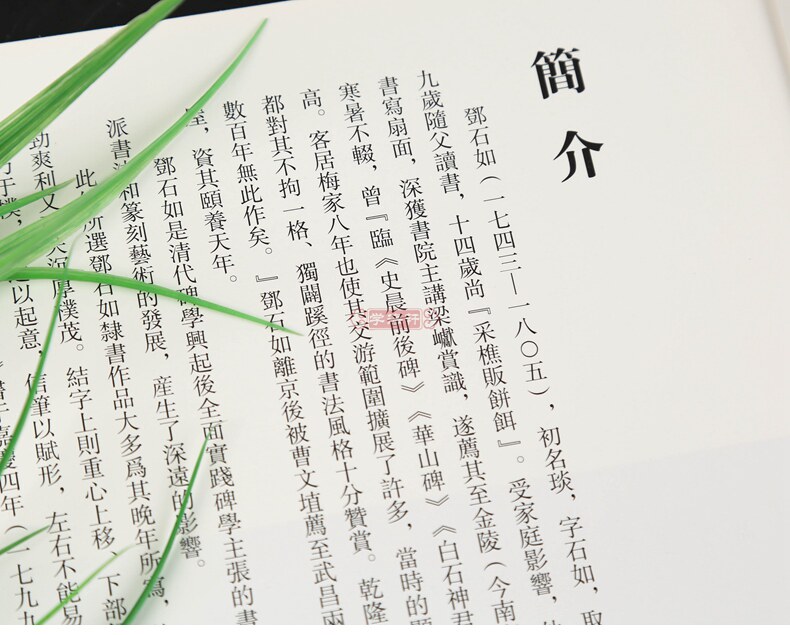 簡介
鄧石如（一七四三—一八〇五），初名琰，字石如，取
九歲隨父讀書，十四歲尚『采樵販餅餌』。受家庭影響，
書寫扇面，深獲書院主講梁巘賞識，遂薦其至金陵（今南
寒暑不輟，曾『臨《史晨前後碑》《華山碑》《白石神君
高。客居梅家八年也使其交游範圍擴展了許多，當時的
都對其不拘一格、獨闢蹊徑的書法風格十分贊賞。乾隆
數百年無此作矣。』鄧石如離京後被曹文埴薦至武昌兩
，資其頤養天年。
鄧石如是清代碑學興起後全面實踐碑學主張的書
派書法和篆刻藝術的發展，産生了深遠的影響。
此 所選鄧石如隸書作品大多爲其晚年所寫，
勁爽利又 沉厚樸茂。結字上則重心上移、下部
于樸， 以起意，信筆以賦形，左右不能易
書于嘉慶四年（一七九九